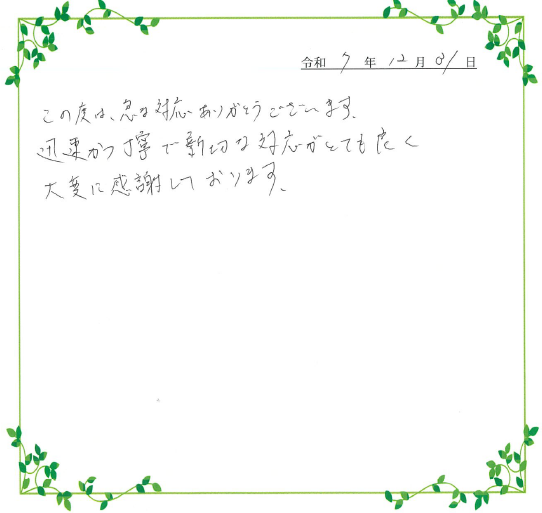 令和 7 年 12 月 31 日
この度は、急な対応ありがとうございます。
迅速かつ丁寧で親切な対応がとても良く
大変に感謝しております。